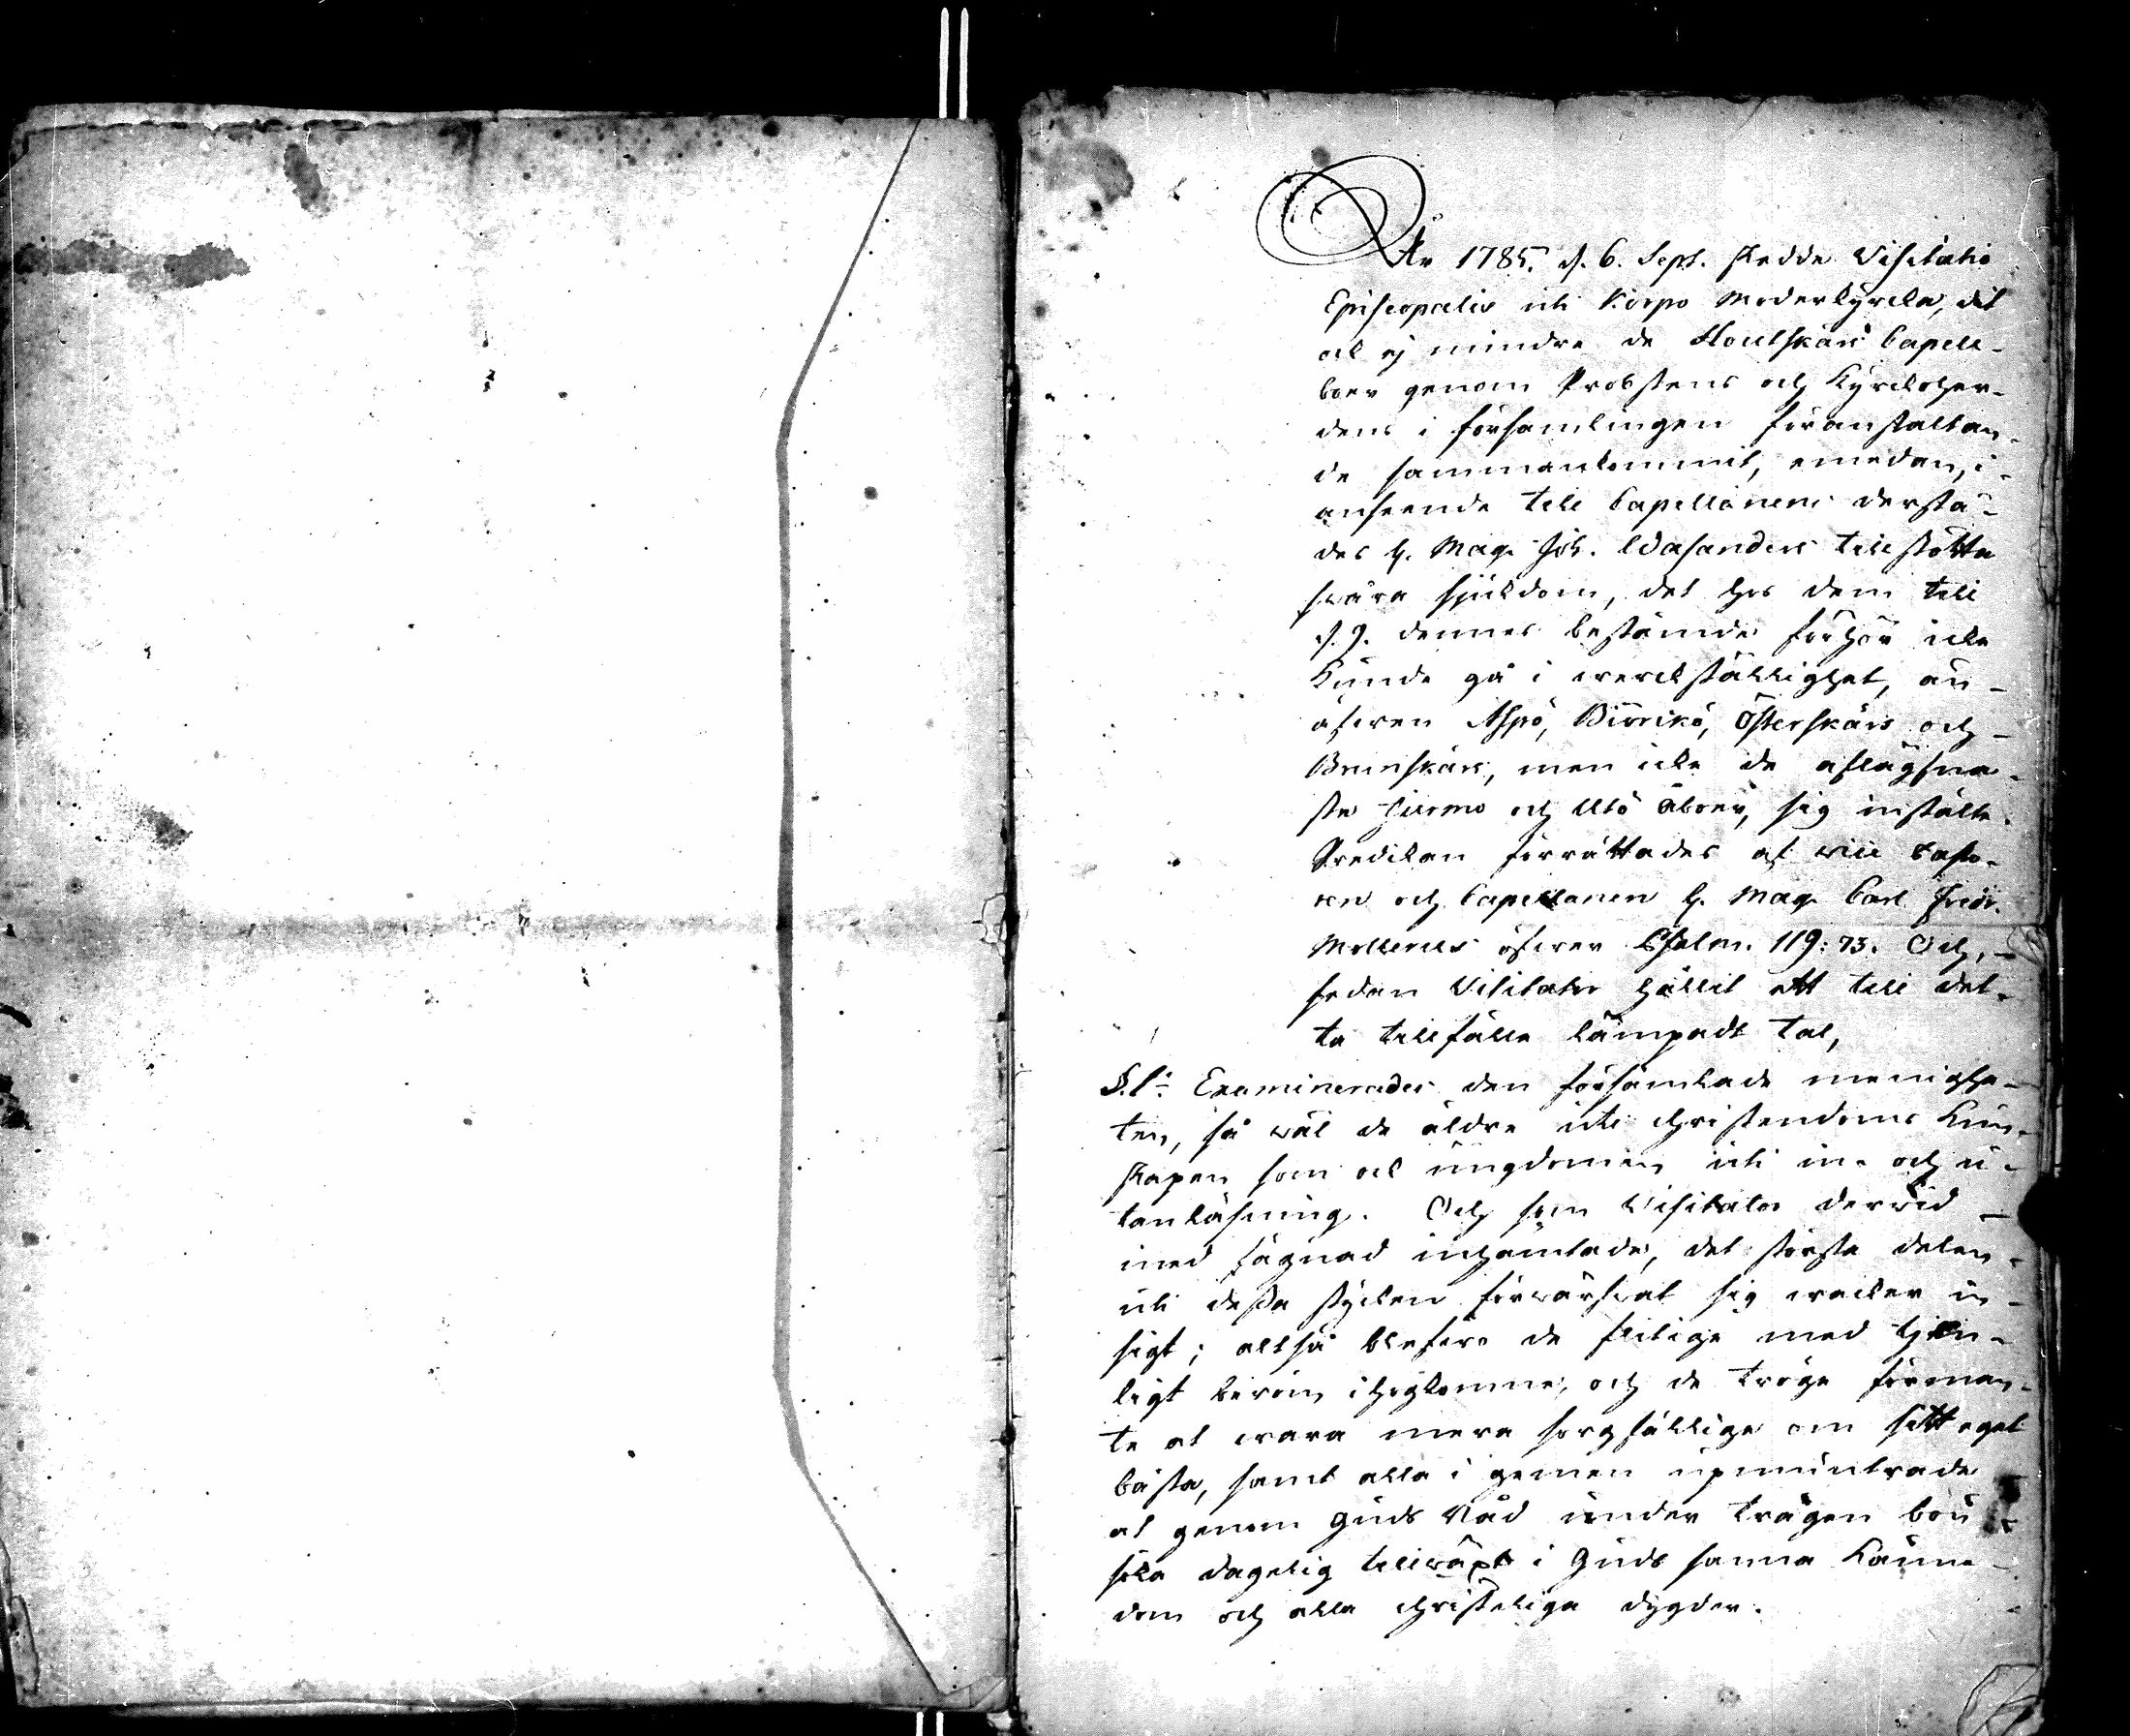 År 1785. d. 6. Sept. skedde Visitatio
Episcopalis uti Korpo Moderkyrcka, dit
ock ej mindre de Houtskärs Capell-
boer genom Probstens och Kyrckoher-
dens i församlingen föranstaltan-
de sammankommit, emedan, i
anseende till Capellanens derstä-
des H. Mag. Joh. Wasanders tillstötta
swåra sjukdom, det hos dem till
d. 9. dennes bestämde förhör icke
kunde gå i werckställighet, än-
äfwen Aspö, Biörkö, Österskärs och
Brunskärs, men icke de aflägsna-
ste Jurmo och Utö Åboer, sig instält.
Predikan förrättades af vice Pasto-
ren och Capellanen H. Mag. Carl Fredr.
Mollerus öfwer Psalm. 119: 73. Och,
sedan Visitator hållit ett till det-
ta tillfälle lämpadt tal,
§. 1. Examinerades den församlade menighe-
ten, så wäl de äldre uti christendoms kun-
skapen som ock ungdomen uti in- och u-
tanläsning. Och som Visitator derwid
med fägnad inhämtade, det största delen
uti dessa stycken förwärfwat sig wacker in-
sigt; altså blefwo de flitige med tjen-
ligt beröm ihogkomne, och de tröge förman-
te at wara mera sorgfällige om sitt eget
bästa, samt alla i gemen upmuntrade
at genom Guds Nåd under trägen bön
söka dagelig tillwäxt i Guds sanna känne-
dom och alla christeliga dygder.